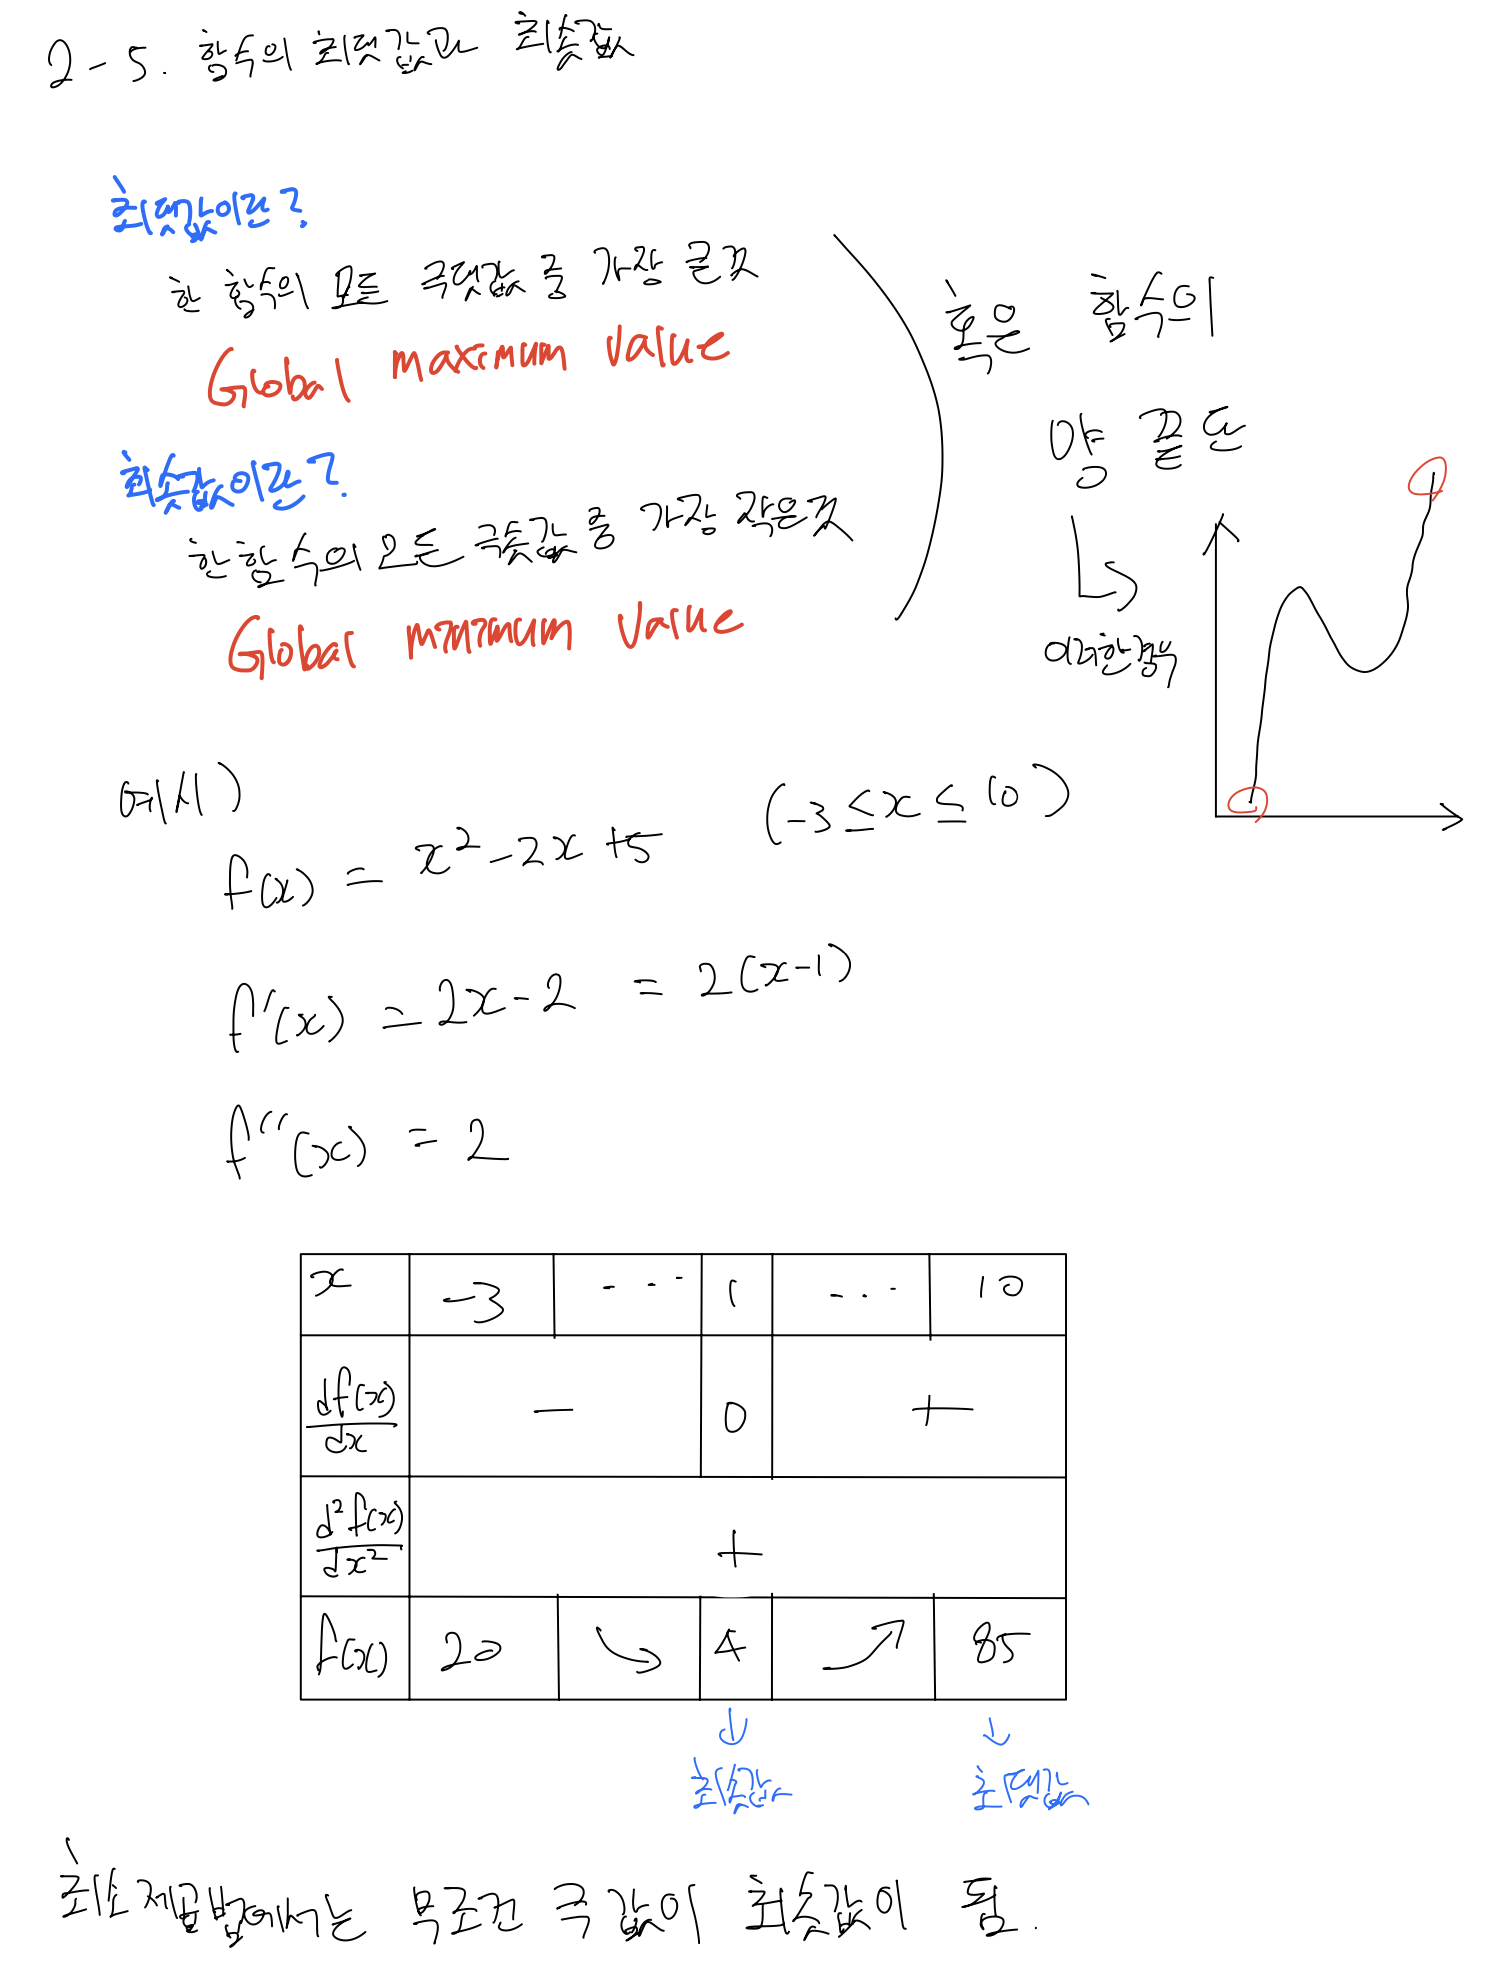 2-5. 함수의 최댓값과 최솟값
최댓값이란?
한 함수의 모든 극댓값 중 가장 큰것
Global maximum value
최솟값이란?
한 함수의 모든 극솟값 중 가장 작은것
Global minimum value
혹은 함수의
양 끝단
이러한 경우
예시)
f(x) = x² - 2x + 5 (-3 ≤ x ≤ 10)
f'(x) = 2x - 2 = 2(x-1)
f''(x) = 2
x -3 ... 1 ... 10
df(x)/dx - 0 +
d²f(x)/dx² +
f(x) 20 ⤵ 4 ⤴ 85
↓ ↓
최솟값 최댓값
최소제곱법에서는 무조건 극값이 최솟값이 됨.